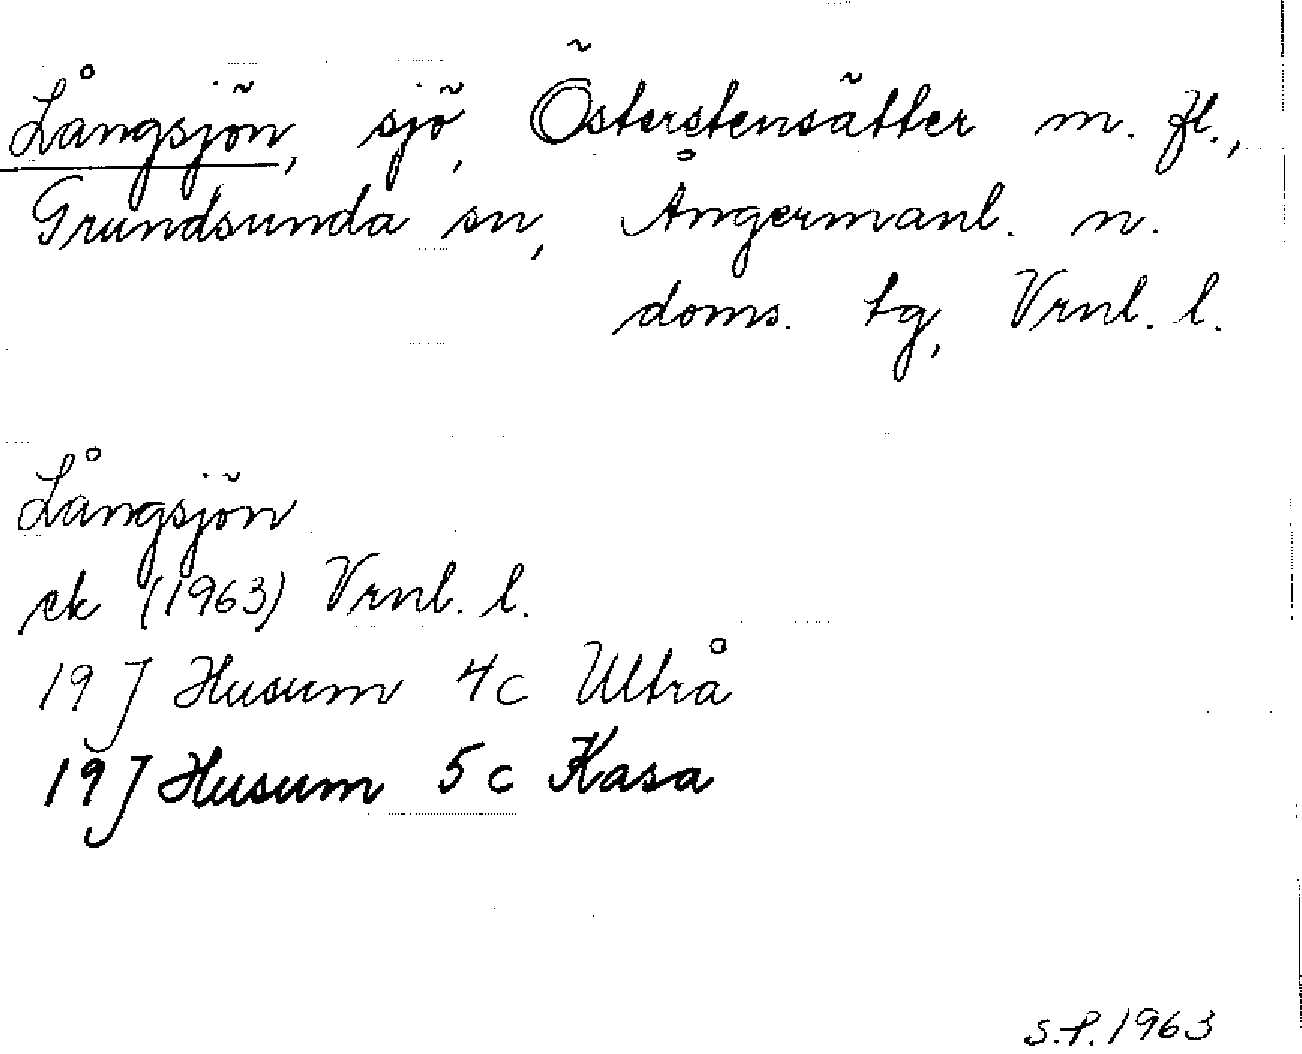 Långsjön, sjö, Österstensätter m. fl.,
Grundsunda sn, Ångermanl. n.
doms. tg, Vrnl. l.
Långsjön
ek (1963) Vrnl. l.
19 J Husum 4c Ultrå
19 J Husum 5c Kasa
S.P. 1963